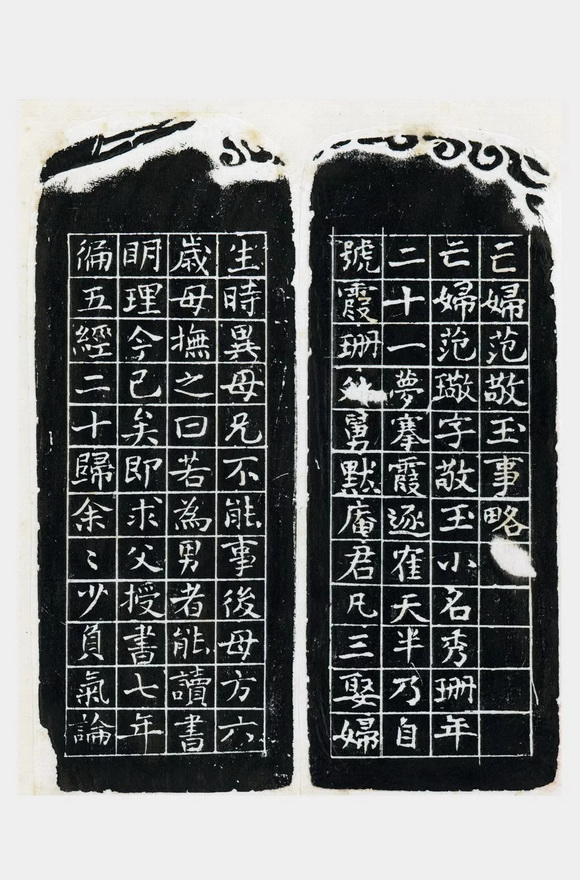 亡婦范敬玉事略
亡婦范璥字敬玉小名秀珊年
二十一夢搴霞逐隺天半乃自
號霞珊外舅默庵君凡三娶婦
生時異母兄不能事後母方六
歲母撫之曰若為男者能讀書
眀理今已矣即求父授書七年
徧五經二十歸余〻少負氣論